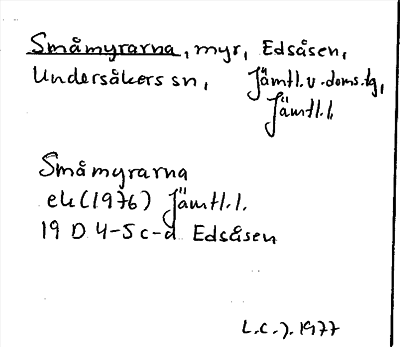 Småmyrarna, myr, Edsåsen,
Undersåkers sn, Jämtl.v.doms.tg,
Jämtl.l.
Småmyrarna
ek (1976) Jämtl.l.
19 D 4-5 c-d Edsåsen
L.C.J. 1977